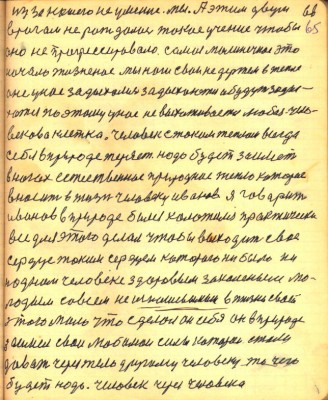 из за нашего не умение. мы. А этим двум 66
врагам не родилось такое учение чтобы 65
оно не прогрессировало. самая маленькое это
начало жизненое мы ноги свои не держем в тепле
они у нас задыхались задыхаются и будут задых-
поэтому у нас не выживаются любая чело-
века клетка. человек с таким телом всегда
себя в природе теряет. надо будет занимать
в ногах естественное природное тепло которое
вносит в жизнь человеку иванов. я говорит
иванов в природе были положил практически
все для этого делал чтобы выходит свое
сердце таким сердцем которого ни было ни
в одном человеке здоровым закаленным мо-
лодым совсем не изношенным в жизни своей
этого мало что сделал он себя он в природе
нашел свои любимые силы которые стали
давать через тело другому человеку то чего
будет надо. человек через человека